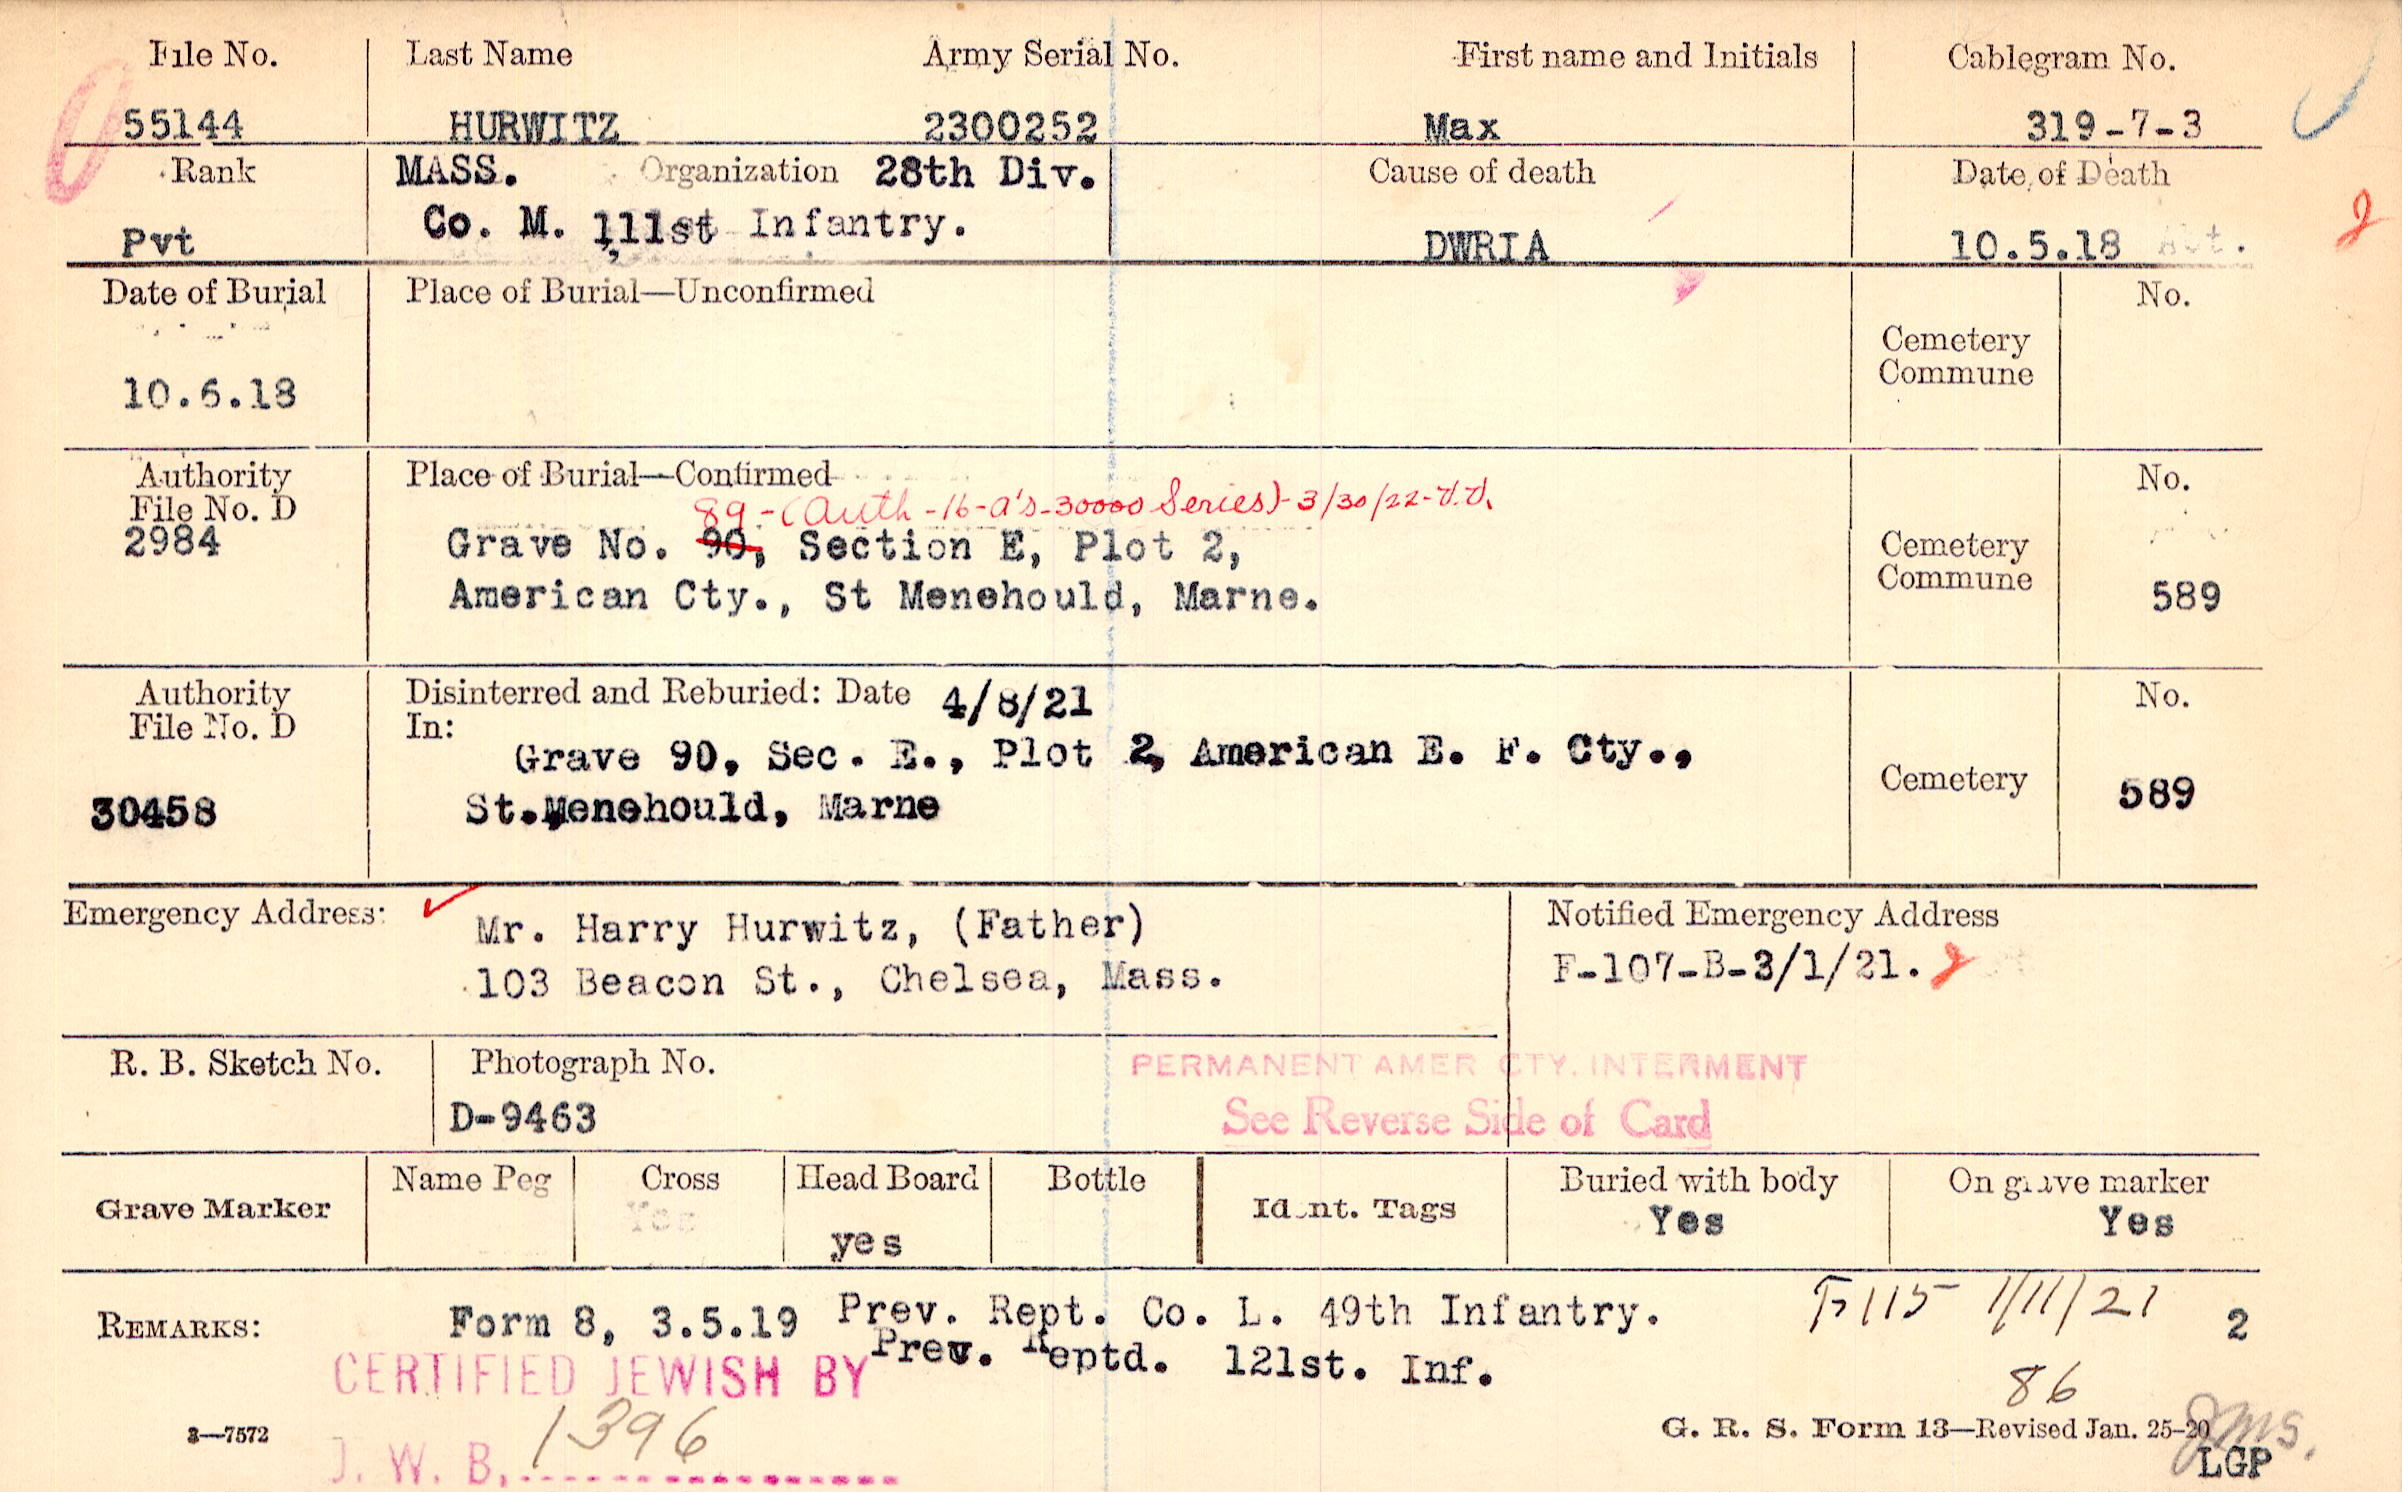 File No. Last Name Army Serial No. First name and Initials Cablegram No.
55144 HURWITZ 2300252 Max 319-7-3
Rank MASS. Organization 28th Div. Cause of death Date of Death
Pvt Co. M. 111st Infantry. DWRIA 10.5.18 Abt.
Date of Burial Place of Burial—Unconfirmed No.
Cemetery
Commune
10.6.18
Authority Place of Burial—Confirmed No.
File No. D 89-(Auth-16-a's-30000 Series)-3/30/22-
2984 Grave No. 90, Section E, Plot 2, Cemetery
American Cty., St Menehould, Marne. Commune 589
Authority Disinterred and Reburied: Date 4/8/21 No.
File No. D In:
Grave 90, Sec. E., Plot 2, American E. F. Cty.,
30458 St.Menehould, Marne Cemetery 589
Emergency Address: Mr. Harry Hurwitz, (Father) Notified Emergency Address
103 Beacon St., Chelsea, Mass. F-107-B-3/1/21.
R. B. Sketch No. Photograph No. PERMANENT AMER CTY. INTERMENT
D-9463 See Reverse Side of Card
Grave Marker Name Peg Cross Head Board Bottle Ident. Tags Buried with body On grave marker
Yes yes Yes Yes
REMARKS: Form 8, 3.5.19 Prev. Rept. Co. L. 49th Infantry. F115 1/11/21 2
Prev. Reptd. 121st. Inf.
CERTIFIED JEWISH BY 86
3—7572 1396 G. R. S. Form 13—Revised Jan. 25-20 JMS.
J. W. B. LGP